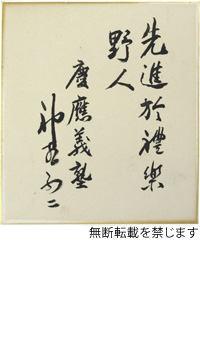 先進於禮樂
野人
慶應義塾
無断転載を禁じます